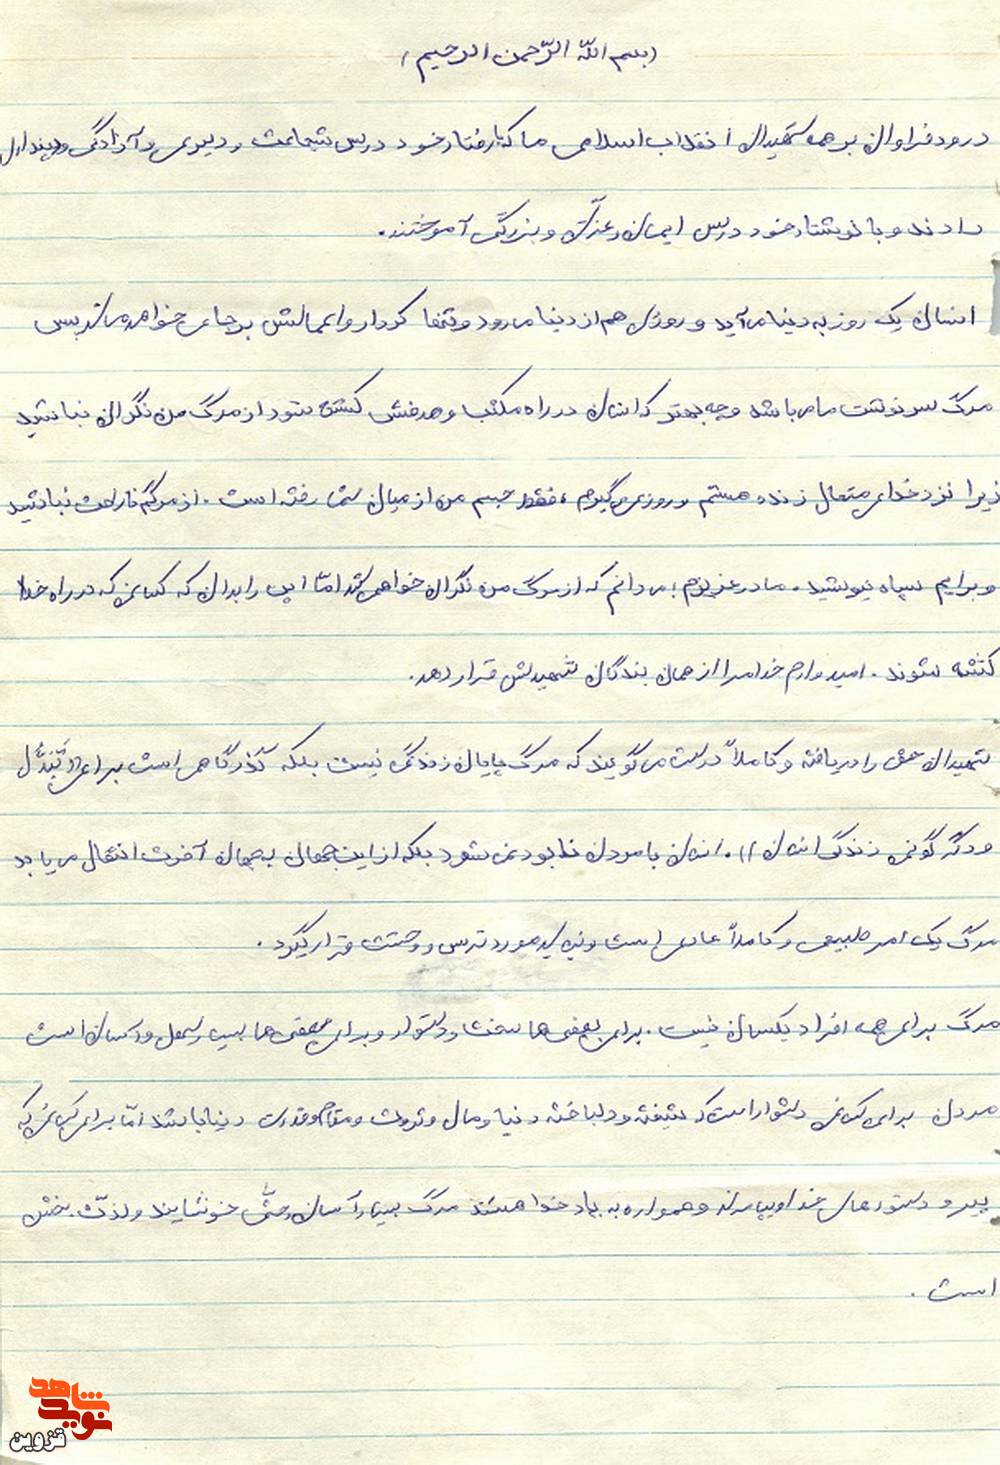 (بسم اللّه الرّحمن الرحیم)
درود فراوان بر همه شهیدان انقلاب اسلامی ما که با رفتار خود درس شجاعت و دلیری و آزادگی و دینداری
دادند و با نوشتار خود درس ایمان و عزّت و بزرگی آموختند.
انسان یک روز به دنیا می‌آید و روزی هم از دنیا می‌رود و تنها کردار و اعمالش بر جای خواهد ماند پس
مرگ سرنوشت ما می‌باشد و چه بهتر که انسان در راه مکتب و هدفش کشته شود از مرگ من نگران نباشید
زیرا نزد خدای متعال زنده هستم و روزی می‌گیرم ، فقط جسم من از میان شما رفته است . از مرگم ناراحت نباشید
و برایم سیاه نپوشید . مادر عزیزم ! می‌دانم که از مرگ من نگران خواهی شد امّا این را بدان که کسانی که در راه خدا
کشته شوند . امیدوارم خدا مرا از همان بندگان شهیدش قرار دهد .
شهیدان حق را دریافته و کاملاً درست می‌گویند که مرگ پایان زندگی نیست بلکه گذرگاهی است برای (( تبدّل
و دگرگونی زندگی انسان )) . انسان با مردن نابود نمی‌شود بلکه از این جهان به جهان آخرت انتقال می‌یابد
مرگ یک امر طبیعی و کاملاً عادی است و نباید مورد ترس و وحشت قرار گیرد .
مرگ برای همه افراد یکسان نیست . برای بعضی‌ها سخت و دشوار و برای بعضی‌ها بسیار سهل و آسان است
مردن برای کسانی دشوار است که شیفته و دلباخته دنیا و مال و ثروت و مقام و قدرت دنیا باشند امّا برای کسانی که
پیرو دستورهای خدا و پیامبرند و همواره به یاد خدا هستند مرگ بسیار آسان و حتّی خوشایند و لذّت بخش
است .
نوید شاهد
قزوین